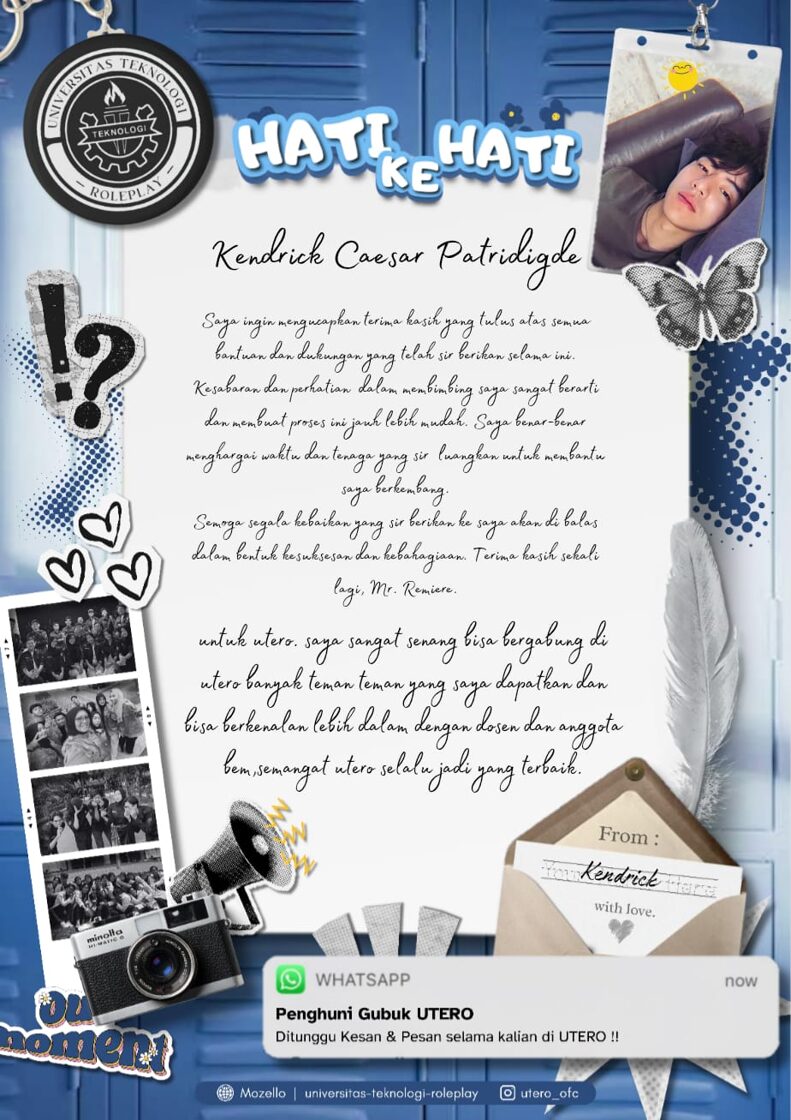 UNIVERSITAS TEKNOLOGI
TEKNOLOGI
– ROLEPLAY –
HATI
KE HATI
Kendrick Caesar Patridigde
!?
Saya ingin mengucapkan terima kasih yang tulus atas semua
bantuan dan dukungan yang telah sir berikan selama ini.
Kesabaran dan perhatian dalam membimbing saya sangat berarti
dan membuat proses ini jauh lebih mudah. Saya benar-benar
menghargai waktu dan tenaga yang sir luangkan untuk membantu
saya berkembang.
Semoga segala kebaikan yang sir berikan ke saya akan di balas
dalam bentuk kesuksesan dan kebahagiaan. Terima kasih sekali
lagi, Mr. Remiere.
untuk utero. saya sangat senang bisa bergabung di
utero banyak teman teman yang saya dapatkan dan
bisa berkenalan lebih dalam dengan dosen dan anggota
bem,semangat utero selalu jadi yang terbaik.
From :
Kendrick
with love.
minolta
HI-MATIC G
our
moment
WHATSAPP
now
Penghuni Gubuk UTERO
Ditunggu Kesan & Pesan selama kalian di UTERO !!
Mozello | universitas-teknologi-roleplay | utero_ofc